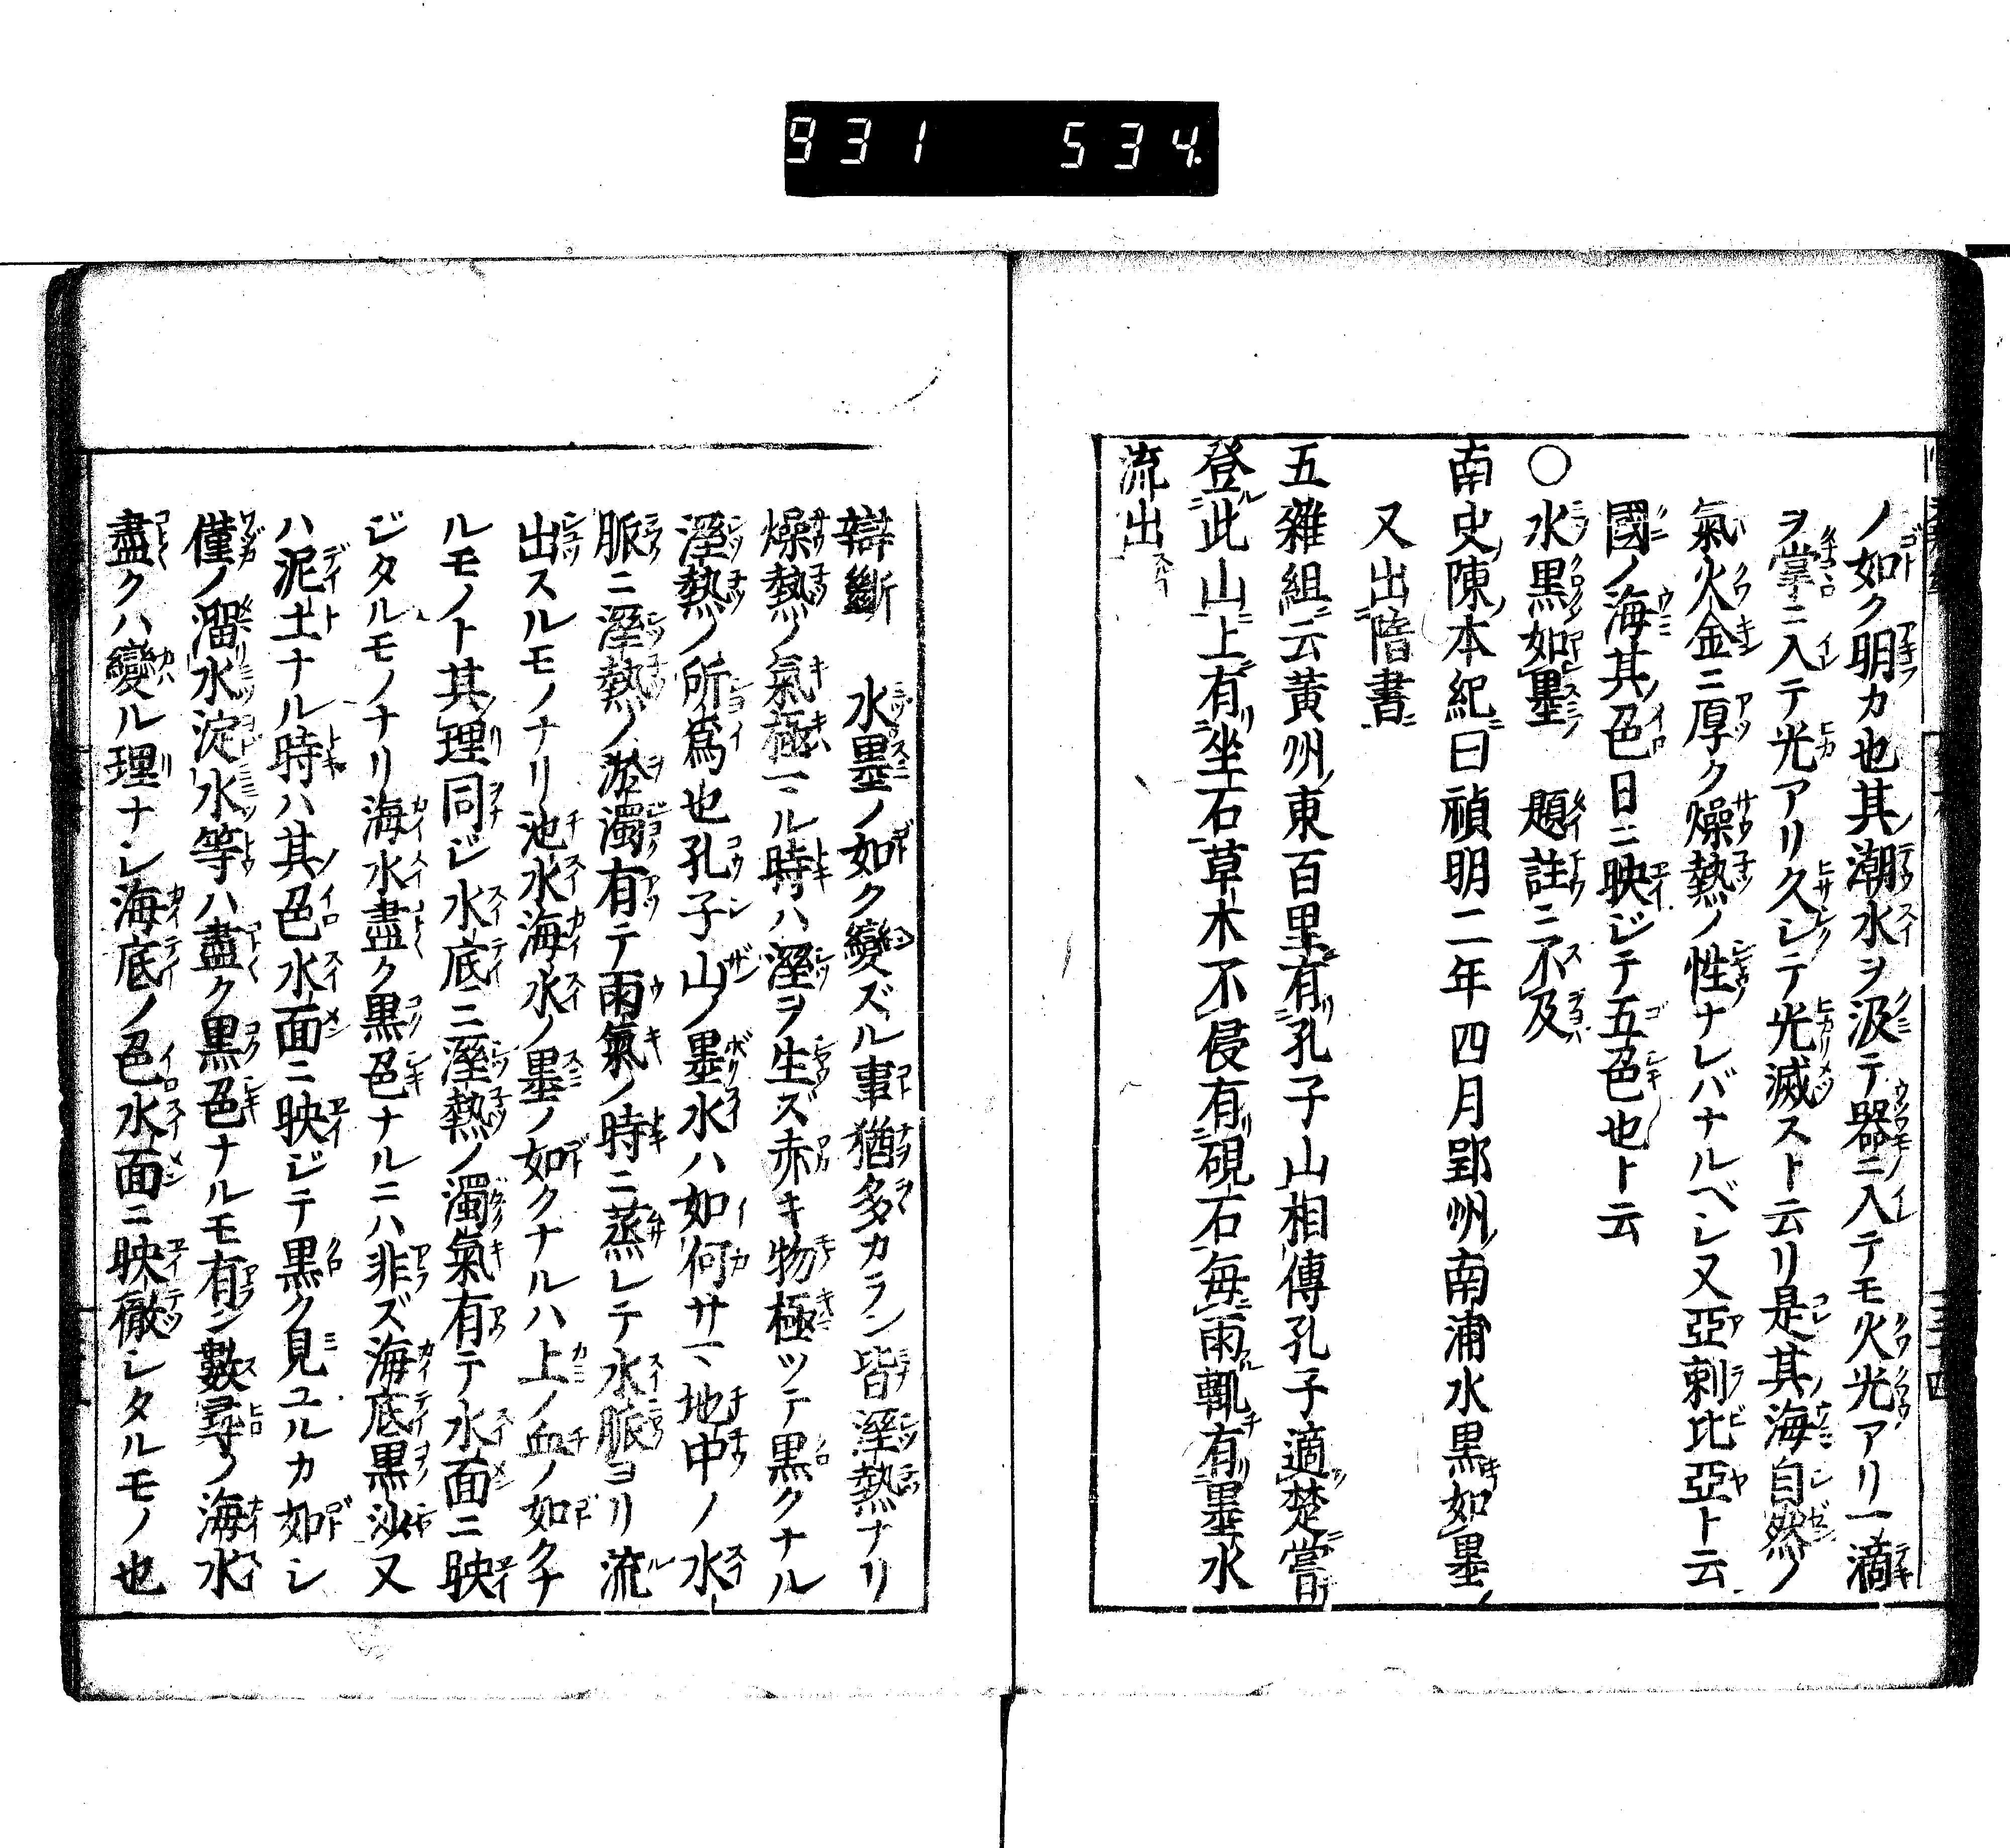 931 534.
ノ如ク明カ也其潮水ヲ汲テ器ニ入テモ火光アリ一滴
ヲ掌ニ入テ光アリ久シテ光滅スト云リ是其海自然ノ
氣火金ニ厚ク燥熱ノ性ナレバナルベシ又亞剌比亞ト云
國ノ海其色日ニ映ジテ五色也ト云
○水黒如墨　題註ニ不及
南史陳本紀曰禎明二年四月郢州南浦水黒如墨
又出隋書
五雜組云黄州東百里有孔子山相傳孔子適楚嘗
登此山上有坐石草木不侵有硯石毎雨輒有墨水
流出
辯斷　水墨ノ如ク變ズル事猶多カラン皆溼熱ナリ
燥熱ノ氣極マル時ハ溼ヲ生ズ赤キ物極ツテ黒クナル
溼熱ノ所爲也孔子山ノ墨水ハ如何サマ地中ノ水
脈ニ溼熱ノ淤濁有テ雨氣ノ時ニ蒸レテ水脈ヨリ流
出スルモノナリ池水海水ノ墨ノ如クナルハ上ノ血ノ如クナ
ルモノト其理同ジ水底ニ溼熱ノ濁氣有テ水面ニ映
ジタルモノナリ海水盡ク黒色ナルニハ非ズ海底黒沙又
ハ泥土ナル時ハ其色水面ニ映ジテ黒ク見ユルカ如シ
僅ノ溜水淀水等ハ盡ク黒色ナルモ有ン數尋ノ海水
盡クハ變ル理ナシ海底ノ色水面ニ映徹シタルモノ也